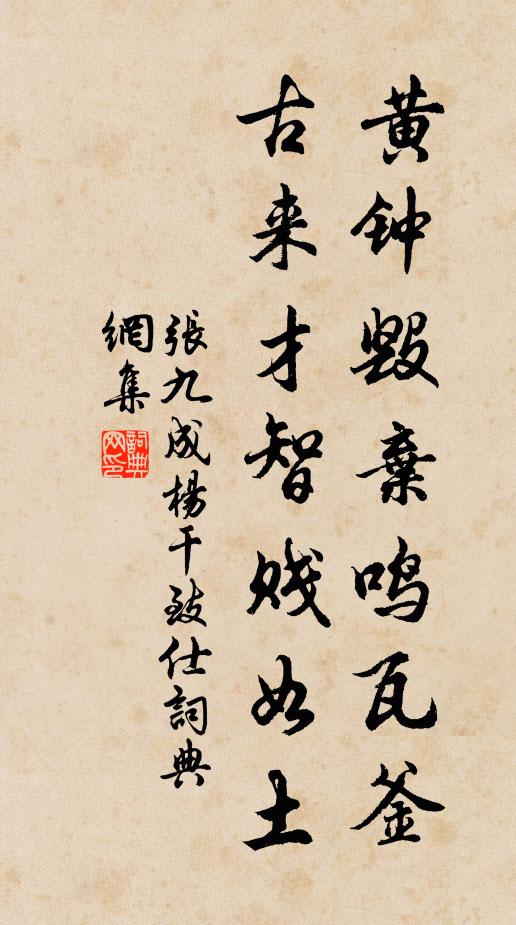 黄钟毁棄鸣瓦釜
古来才智贱如土
張九成楊干致仕詞典
網集
詞典网印